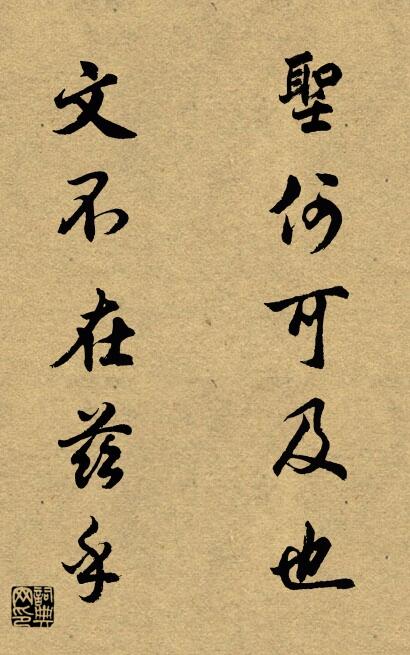 聖何可及也
文不在茲乎
詞典網印